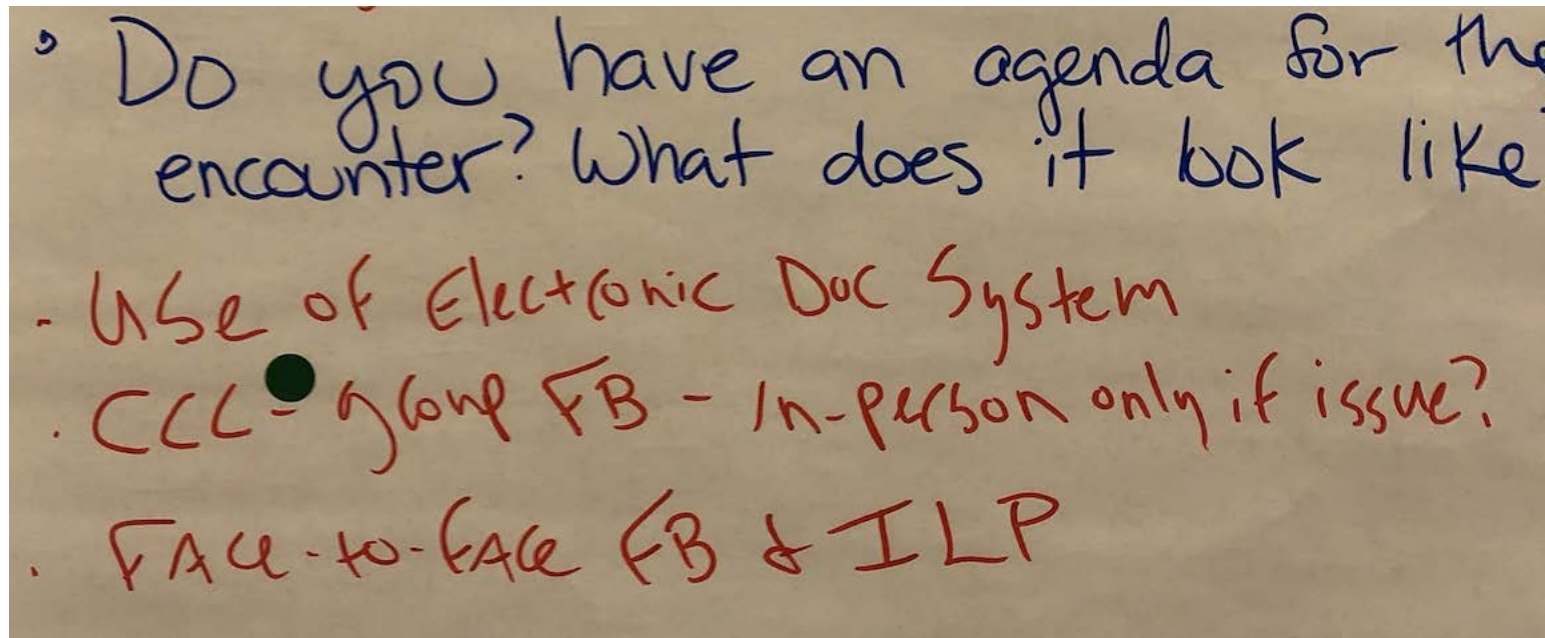 • Do you have an agenda for the
encounter? What does it look like
- Use of Electronic Doc System
. CCC - group FB - In-person only if issue?
. FACe-to-fACe FB & ILP